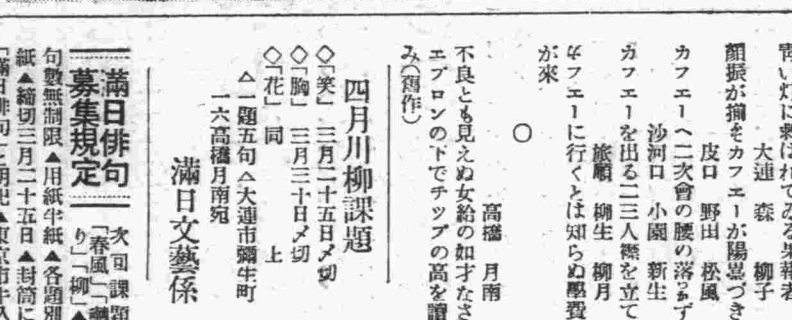 青い灯に救はれてゐる果報者
大連 森 柳子
顔振が揃をカフエーが陽気づき
皮口 野田 松風
カフエーへ二次會の腰の落つかず
沙河口 小園 新生
カフエーを出る二三人襟を立て
旅順 柳生 柳月
カフエーに行くとは知らぬ學費
が來
○
高橋 月南
不良とも見えぬ女給の如才なさ
エプロンの下でチツプの高を讀
み(寫作)
四月川柳課題
◇「笑」 三月二十五日〆切
◇「胸」 三月三十日〆切
◇「花」 同 上
△一題五句△大連市彌生町
一六高橋月南宛
滿日文藝係
滿日俳句
募集規定
次回課題
「春風」「
り」「柳」▲
句數無制限▲用紙半紙▲各題別
紙▲締切三月二十五日▲封筒に
「滿日俳句」と明記▲東京市牛込